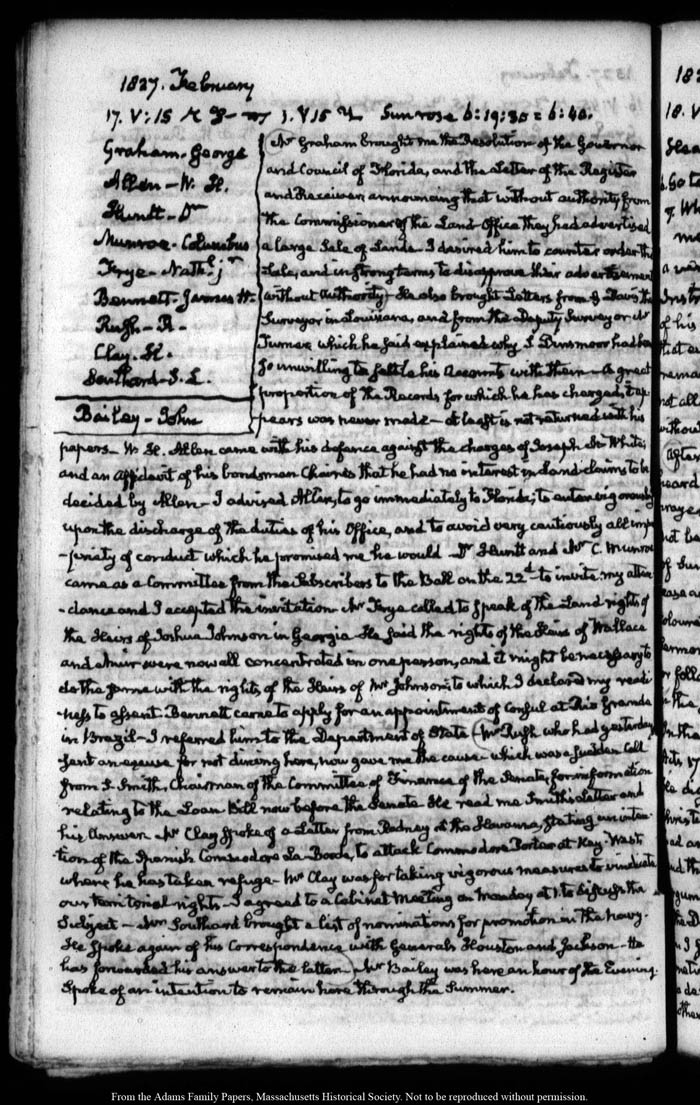 1827. February
17. V:15 Sun rose 6:19:30 = 6:40.
Graham. George
Allen - W. H.
Huntt - Dr
Munroe - Columbus
Frye - Nathl. jr
Bennett - James H.
Rush - R.
Clay. H.
Southard - S. L.
Bailey - John
Mr Graham brought me the Resolution of the Governor
and Council of Florida, and the Letter of the Register
and Receiver, announcing that without authority from
the Commissioner of the Land-Office they had advertised
a large Sale of Lands - I desired him to counter order the
Sale, and in strong terms to disapprove their advertisement
without authority - He also brought Letters from Davis the
Surveyor in Louisiana, and from the Deputy Surveyor Mr
Turner which he said explained why S Dinsmoor had been
so unwilling to settle his Accounts with them - A great
proportion of the Records for which he has charged, it ap-
pears was never made - at least is not returned with his
papers - W. H. Allen came with his defence against the charges of Joseph M White,
and an Affidavit of his bondsman Chaires that he had no interest in Land claims to be
decided by Allen - I advised Allen, to go immediately to Florida; to enter vigorously
upon the discharge of the duties of his Office, and to avoid very cautiously all impro
-priety of conduct which he promised me he would - Dr Huntt and Mr C. Munroe
came as a Committee from the Subscribers to the Ball on the 22d to invite my atten
-dance and I accepted the invitation - Mr Frye called to speak of the Land rights of
the Heirs of Joshua Johnson in Georgia - He said the rights of the Heirs of Wallace
and Muir were now all concentrated in one person, and it might be necessary to
do the same with the rights of the Heirs of Mr Johnson; to which I declared my readi
-ness to assent. Bennett came to apply for an appointment of Consul at Rio Grande
in Brazil - I referred him to the Department of State - Mr Rush who had yesterday
sent an excuse for not dining here, now gave me the cause - which was a sudden call
from S. Smith, Chairman of the Committee of Finance of the Senate, for information
relating to the Loan Bill now before the Senate - He read me Smith's Letter and
his Answer - Mr Clay spoke of a Letter from Rodney at the Havanna, stating an inten-
tion of the Spanish Commodore La-Borde, to attack Commodore Porter at Key-West
where he has taken refuge - Mr Clay was for taking vigorous measures to vindicate
our territorial rights - I agreed to a Cabinet Meeting on Monday at 1. to discuss the
Subject - Mr Southard brought a list of nominations for promotion in the Navy.
He spoke again of his Correspondence with Generals Houston and Jackson - He
has forwarded his answer to the latter - Mr Bailey was here an hour of the Evening.
Spoke of an intention to remain here through the Summer.
From the Adams Family Papers, Massachusetts Historical Society. Not to be reproduced without permission.